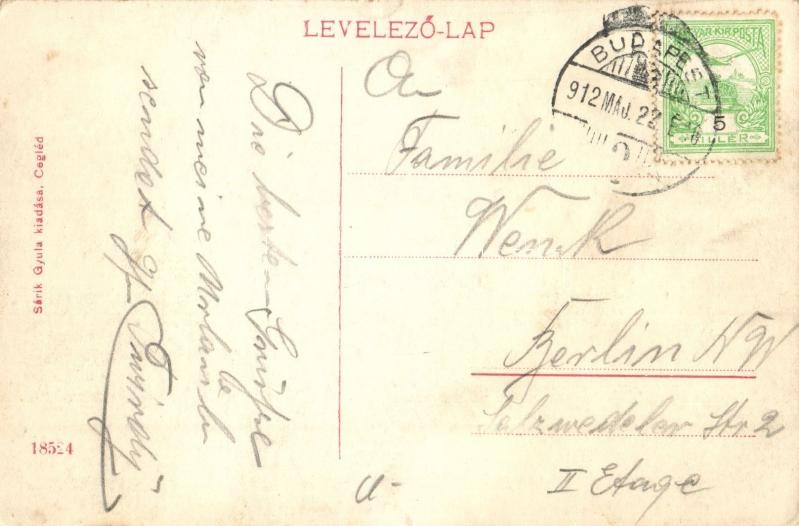 LEVELEZŐ-LAP
Die besten Grüße
von meine
sendet
An
Familie
Wenk
Berlin NW
Salzwedeler Str 2
II Etage
BUDAPEST
912 MÁJ. 22
MAGYAR KIR. POSTA
5
FILLER
Sárik Gyula kiadása, Cegléd
18524